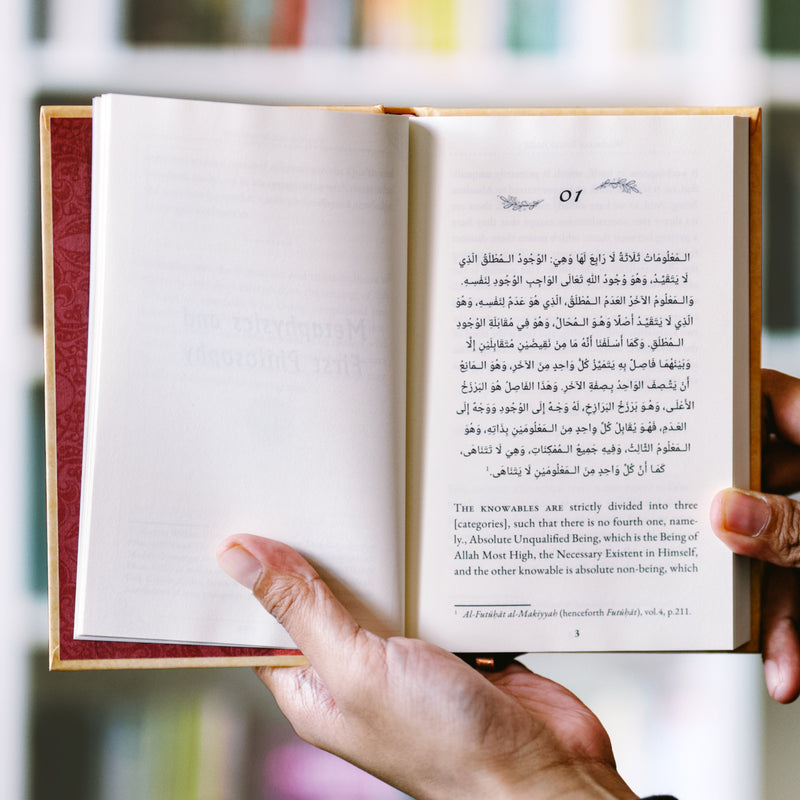 01
الـمَعْلُومَاتُ ثَلَاثَةٌ لَا رَابِعَ لَهَا وَهِيَ: الوُجُودُ الـمُطْلَقُ الَّذِي
لَا يَتَقَيَّدُ، وَهُوَ وُجُودُ اللهِ تَعَالَى الوَاجِبِ الوُجُودِ لِنَفْسِهِ.
وَالـمَعْلُومُ الآخَرُ العَدَمُ الـمُطْلَقُ، الَّذِي هُوَ عَدَمٌ لِنَفْسِهِ، وَهُوَ
الَّذِي لَا يَتَقَيَّدُ أَصْلًا وَهُـوَ الـمُحَالُ، وَهُوَ فِي مُقَابَلَةِ الوُجُودِ
الـمُطْلَقِ. وَكَمَا أَسْلَفْنَا أَنَّهُ مَا مِنْ نَقِيضَيْنِ مُتَقَابِلَيْنِ إِلَّا
وَبَيْنَهُمَا فَاصِلٌ بِهِ يَتَمَيَّزُ كُلُّ وَاحِدٍ مِنَ الآخَرِ، وَهُوَ الـمَانِعُ
أَنْ يَتَّصِفَ الوَاحِدُ بِصِفَةِ الآخَرِ. وَهَذَا الفَاصِلُ هُوَ البَرْزَخُ
الأَعْلَى، وَهُوَ بَرْزَخُ البَرَازِخِ، لَهُ وَجْهٌ إِلَى الوُجُودِ وَوَجْهٌ إِلَى
العَدَمِ، فَهُوَ يُقَابِلُ كُلَّ وَاحِدٍ مِنَ الـمَعْلُومَيْنِ بِذَاتِهِ، وَهُوَ
الـمَعْلُومُ الثَّالِثُ، وَفِيهِ جَمِيعُ الـمُمْكِنَاتِ، وَهِيَ لَا تَتَنَاهَى،
كَمَا أَنَّ كُلَّ وَاحِدٍ مِنَ الـمَعْلُومَيْنِ لَا يَتَنَاهَى.¹
THE KNOWABLES ARE strictly divided into three
[categories], such that there is no fourth one, name-
ly., Absolute Unqualified Being, which is the Being of
Allah Most High, the Necessary Existent in Himself,
and the other knowable is absolute non-being, which
¹ Al-Futūḥāt al-Makiyyah (henceforth Futūḥāt), vol.4, p.211.
3